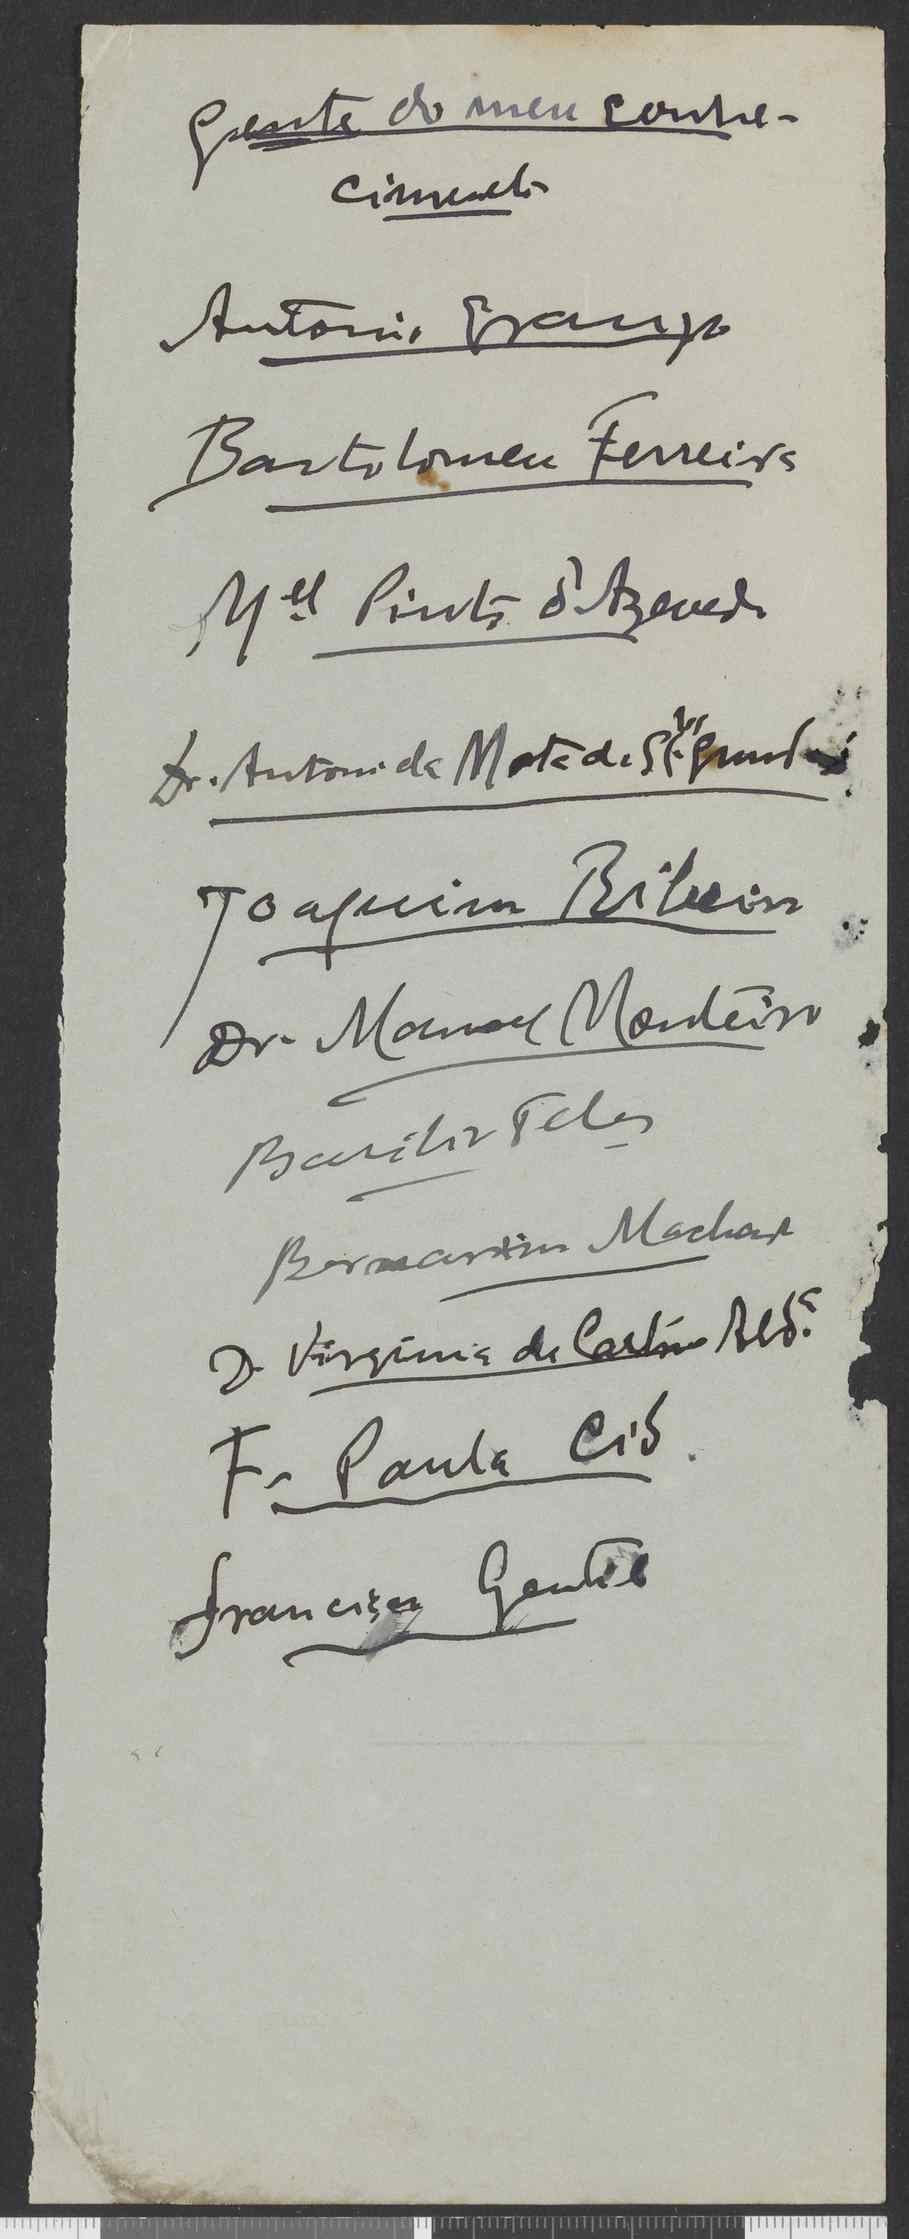 Gente do meu conhe-
cimento
Antonio Granjo
Bartolomeu Ferreira
M.el Pinto d'Azevedo
Dr. Antonio da Mota de
Joaquim Ribeiro
Dr. Manoel Monteiro
Basilio Teles
Bernardino Machado
D. Virginia de Castro Ald.a
F. Paula Cid.
Francisco Gentil